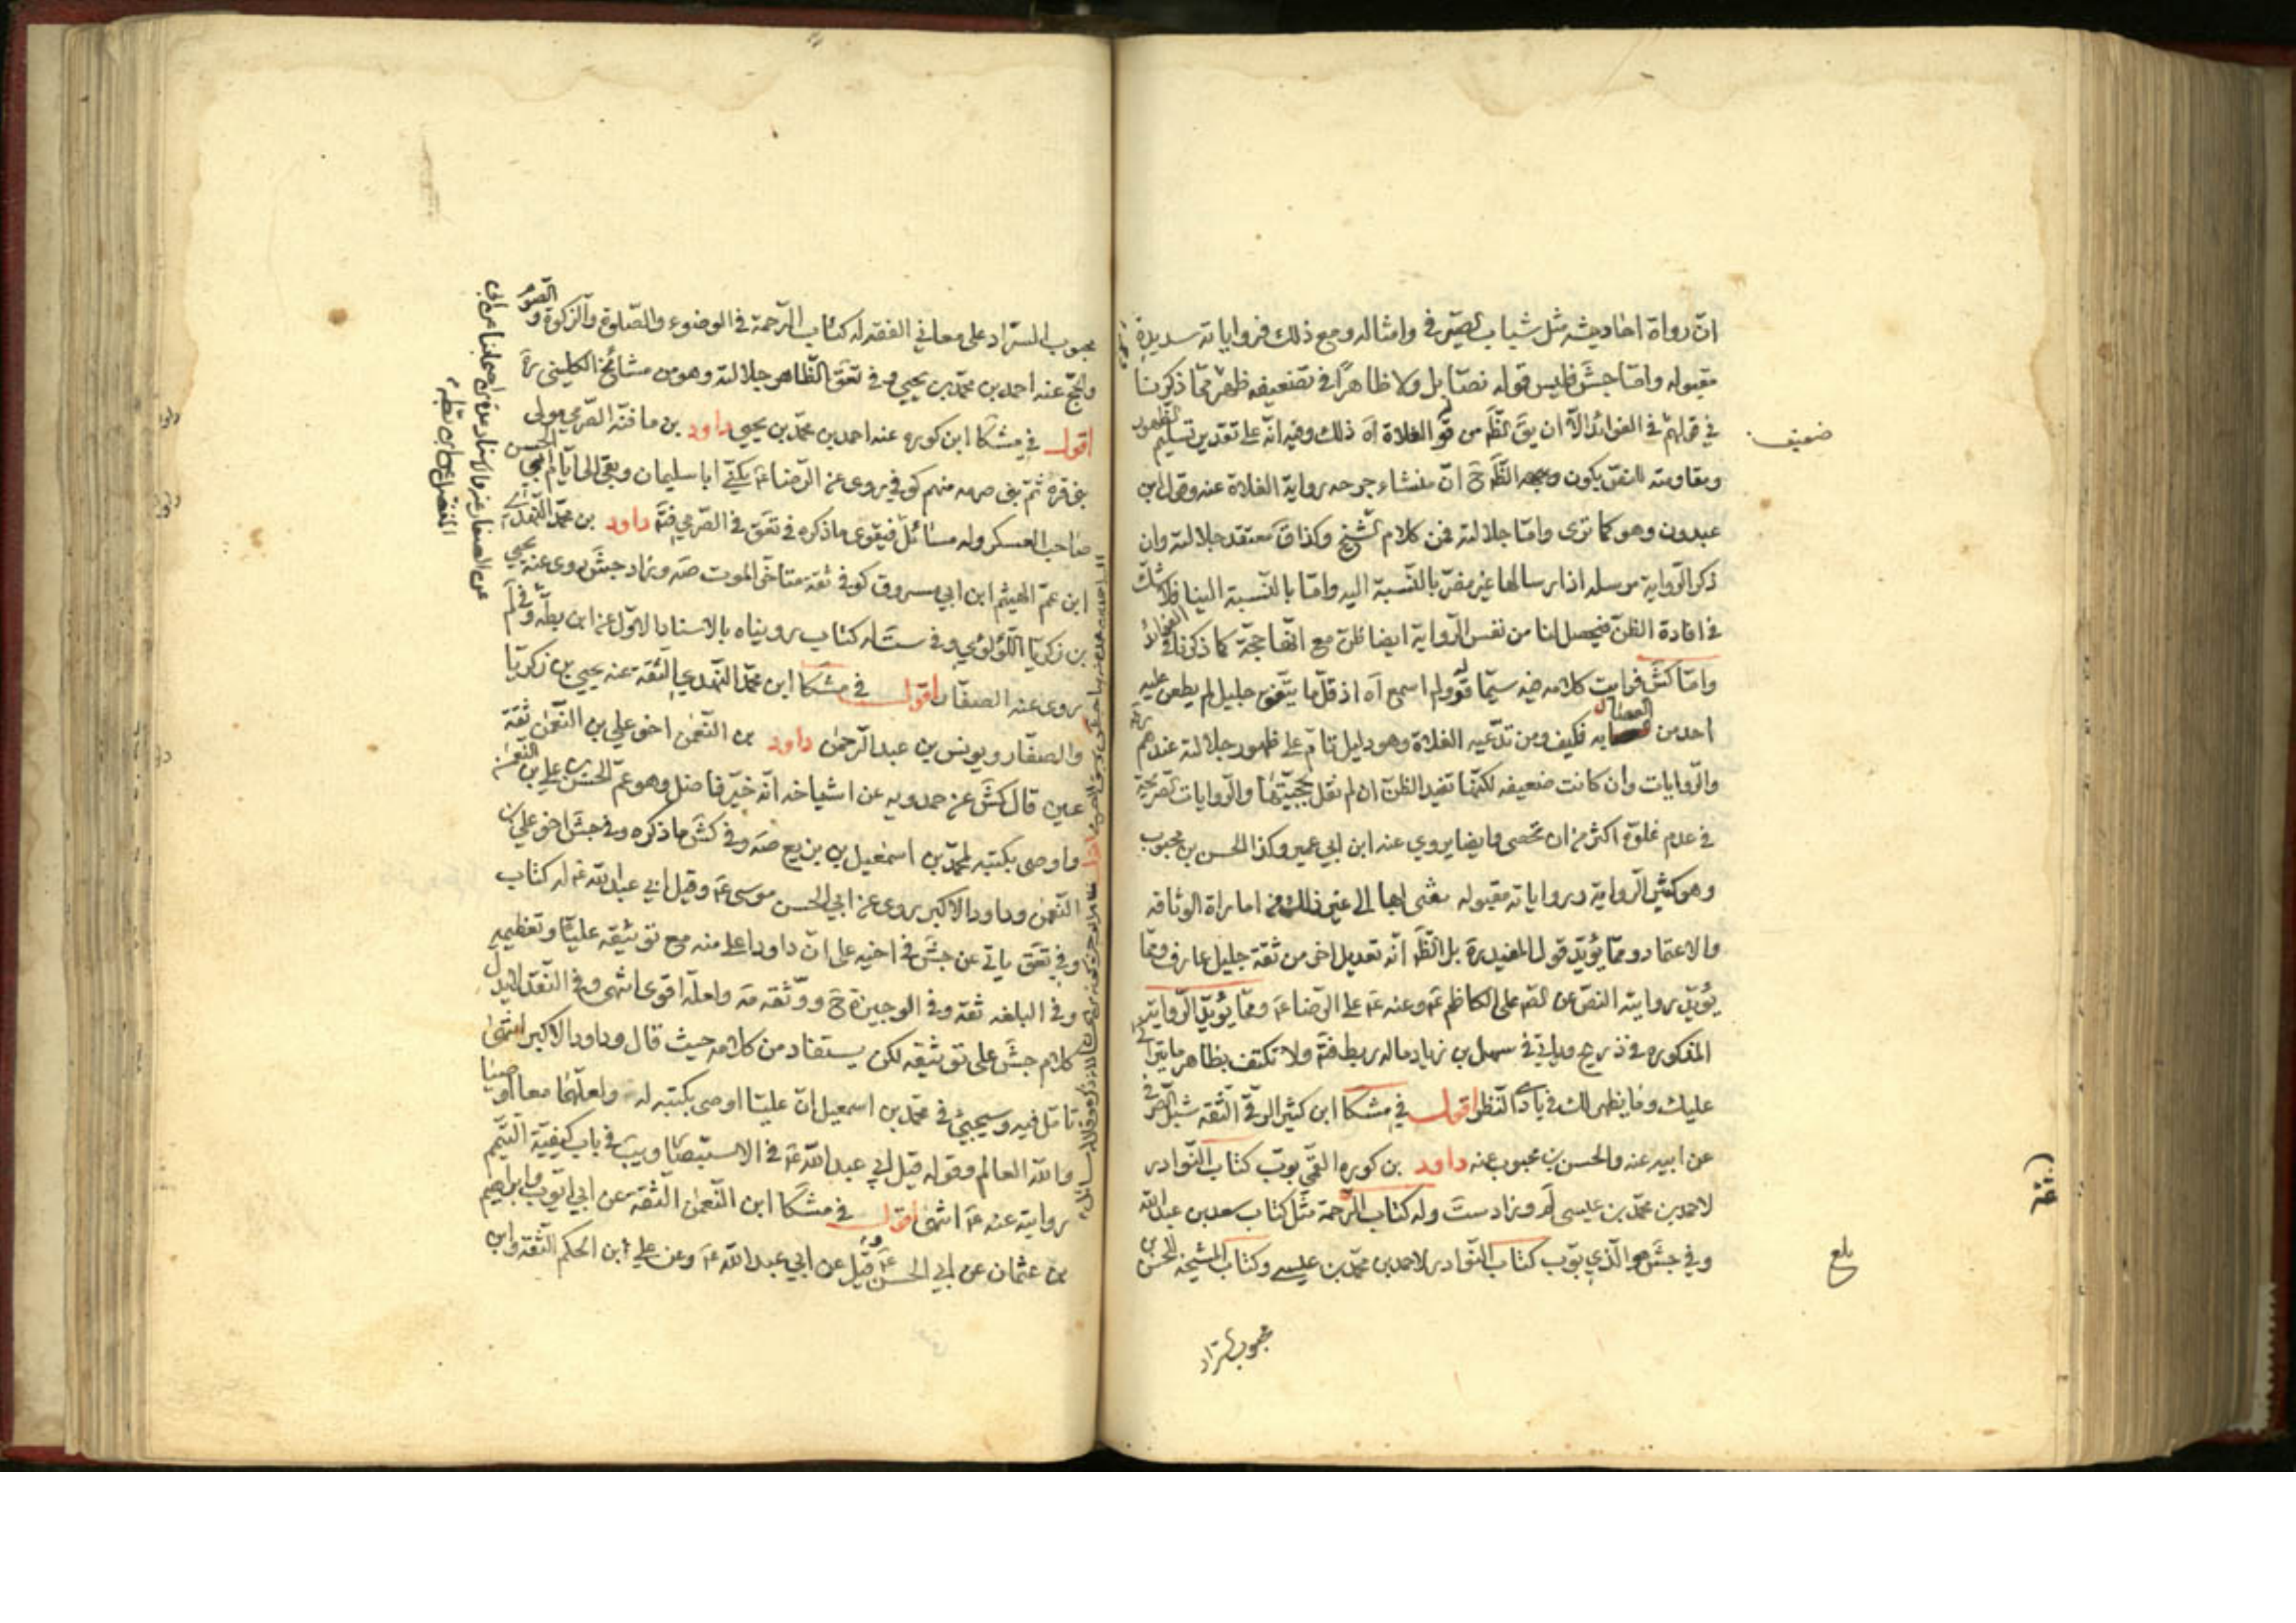 انّ رواة احاديثه مثل شباب الصيرفي وامثاله ومع ذلك فرواياته سديدة
مقبوله وامّا جش فليس قوله نصّا بل ولا ظاهراً في تضعيفه ظهر ممّا ذكرنا
في قولهم في الفوائد الّا ان يق الظّ من قوله الغلاة اه ذلك وفيه انّه على تقدير تسليم الظهور
ومقاومته للنصّ يكون وجهه الظّ ح انّ منشاء جرحه رواية الغلاة عنه وقول ابن
عبدون وهو كما ترى وامّا جلالته فمن كلام الشّيخ وكذا ق معتقد جلالته وان
ذكر الرّواية مرسله اذ ارسالها غير مضرّ بالنّسبة اليه وامّا بالنّسبة الينا فلا شكّ
في افادة الظنّ فيحصل لنا من نفس الرّواية ايضا ظنّ مع انّها حجّة كما ذكرنا في الفوائد
وامّا كش فرايت كلامه فيه سيّما قوله ولم اسمع اه اذ قلّ ما يتّفق جليل لم يطعن عليه
احد من العصابه فكيف ومن تدّعيه الغلاة وهو دليل تامّ على ظهور جلالته عندهم
والرّوايات وان كانت ضعيفه لكنّها تفيد الظنّ ان لم نقل بحجيّتها والرّوايات الصّريحة
في عدم غلوّه اكثر من ان تحصى وايضا يروي عنه ابن ابي عمير وكذا الحسن بن محبوب
وهو كثير الرّواية ورواياته مقبوله مفتى بها الى غير ذلك من امارات الوثاقه
والاعتماد وممّا يؤيّد قول المفيد ره بل الظّ انّه تعديل اخر من ثقة جليل عارف وممّا
يؤيّد روايته النصّ عن الصّ على الكاظم ع وعنه ع على الرّضا ع وممّا يؤيّد الرّواية
المذكوره في ذريح وياتي في سهل بن زياد ماله ربط فتّه ولا تكتف بظاهر ما يترائى
عليك وما يظهر لك في بادي النّظر اقول في مشكا ابن كثير الرقّي الثّقة شبل الصّيرفي
عن ابيه عنه والحسن بن محبوب عنه داود بن كوره القمّي بوّب كتاب النّوادر
لاحمد بن محمّد بن عيسى لم وزاد ست وله كتاب الرّحمة مثل كتاب سعد بن عبد الله
وفي جش هو الّذي بوّب كتاب النّوادر لاحمد بن محمّد بن عيسى وكتاب المشيخه للحسن بن
محبوب السّراد
ضعيف
بلغ
محبوب السّراد على معاني الفقه له كتاب الرّحمة في الوضوء والصّلوة والزّكوة والصّوم
والحجّ عنه احمد بن محمّد بن يحيى وفي تعق الظّاهر جلالته وهو من مشائخ الكليني ره
اقول في مشكا ابن كوره عنه احمد بن محمّد بن يحيى داود بن مافنّه الصّرمي مولى
بني قرّة ثمّ بني صرمه منهم كوفي روى عن الرّضا ع يكنّى ابا سليمان وبقى الى ايّام ابي الحسن
صاحب العسكر وله مسائل فيقوى ما ذكره في تعق في الصّرمي فتّه داود بن محمّد النّهدي
ابن عمّ الهيثم ابن ابي مسروق كوفي ثقة متاخّر الموت صه وزاد جش روى عنه يحيى
بن زكريّا اللّؤلؤي وفي ست له كتاب رويناه بالاسناد الاوّل عن ابن بطّة وفي لم
روى عنه الصفّار اقول في مشكا ابن محمّد النّهدي الثّقة عنه يحيى بن زكريّا
والصفّار ويونس بن عبد الرّحمن داود بن النّعمن اخو علي بن النّعمن ثقة
عين قال كش عن حمدويه عن اشياخه انّه خيّر فاضل وهو عمّ الحسن بن علي بن النّعمن
واوصى بكتبه لمحمّد بن اسمعيل بن بزيع صه وفي كش ما ذكره وفي جش اخو علي بن
النّعمن وداود الاكبر روى عن ابي الحسن موسى ع وقيل ابي عبد الله ع له كتاب
وفي تعق ياتي عن جش في اخيه علي انّ داود اعلى منه مع توثيقه عليّا وتعظيمه
وفي البلغه ثقة وفي الوجيزة ح ووثّقه مه ولعلّه اقوى انتهى وفي النّقد لا يدلّ
كلام جش على توثيقه لكن يستفاد من كلامه حيث قال وداود الاكبر انتهى
تامّل فيه وسيجيئ في محمّد بن اسمعيل انّ عليّا اوصى بكتبه له ولعلّهما معا اوصيا
والله العالم وقوله قيل ابي عبد الله ع في الاستبصار ويب في باب كيفيّة التيمّم
روايته عنه ع انتهى اقول في مشكا ابن النّعمن الثّقة عن ابي ايّوب وابراهيم
بن عثمان عن ابي الحسن ع وقيل عن ابي عبد الله ع وعن علي ابن الحكم الثّقة وابن